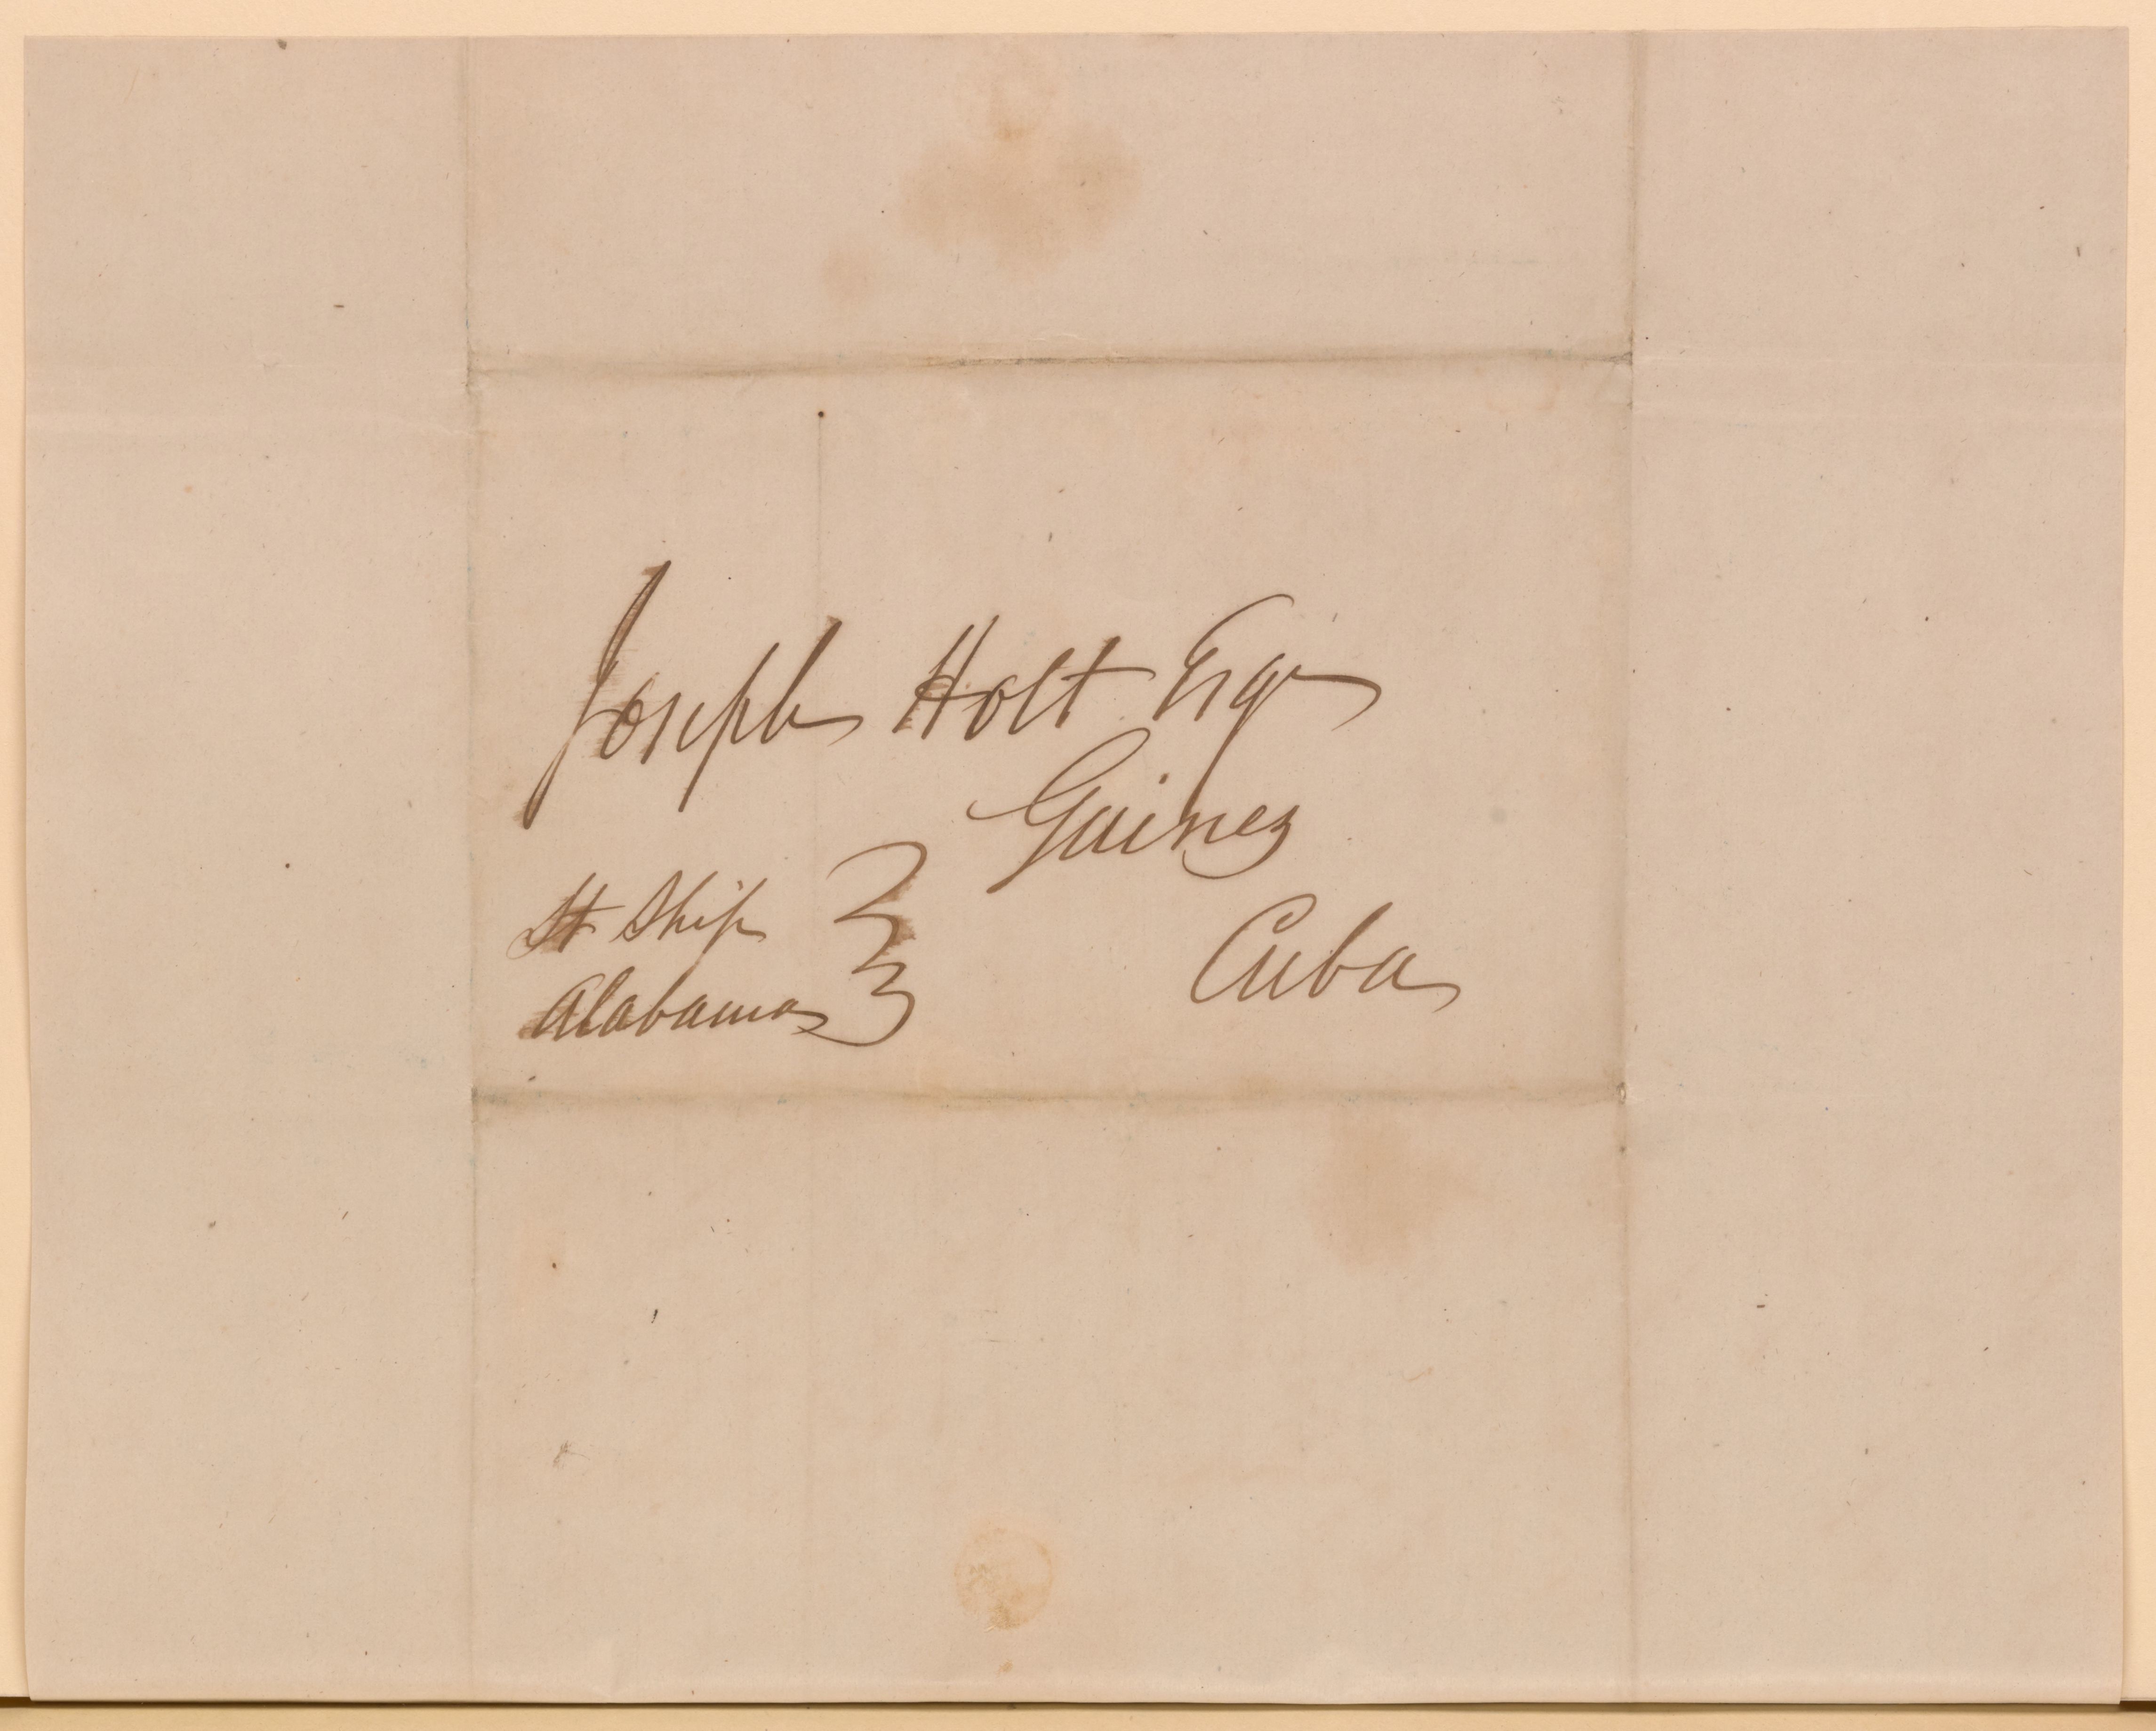 Joseph Holt Esqr
Guinez
Cuba
St Ship
Alabama